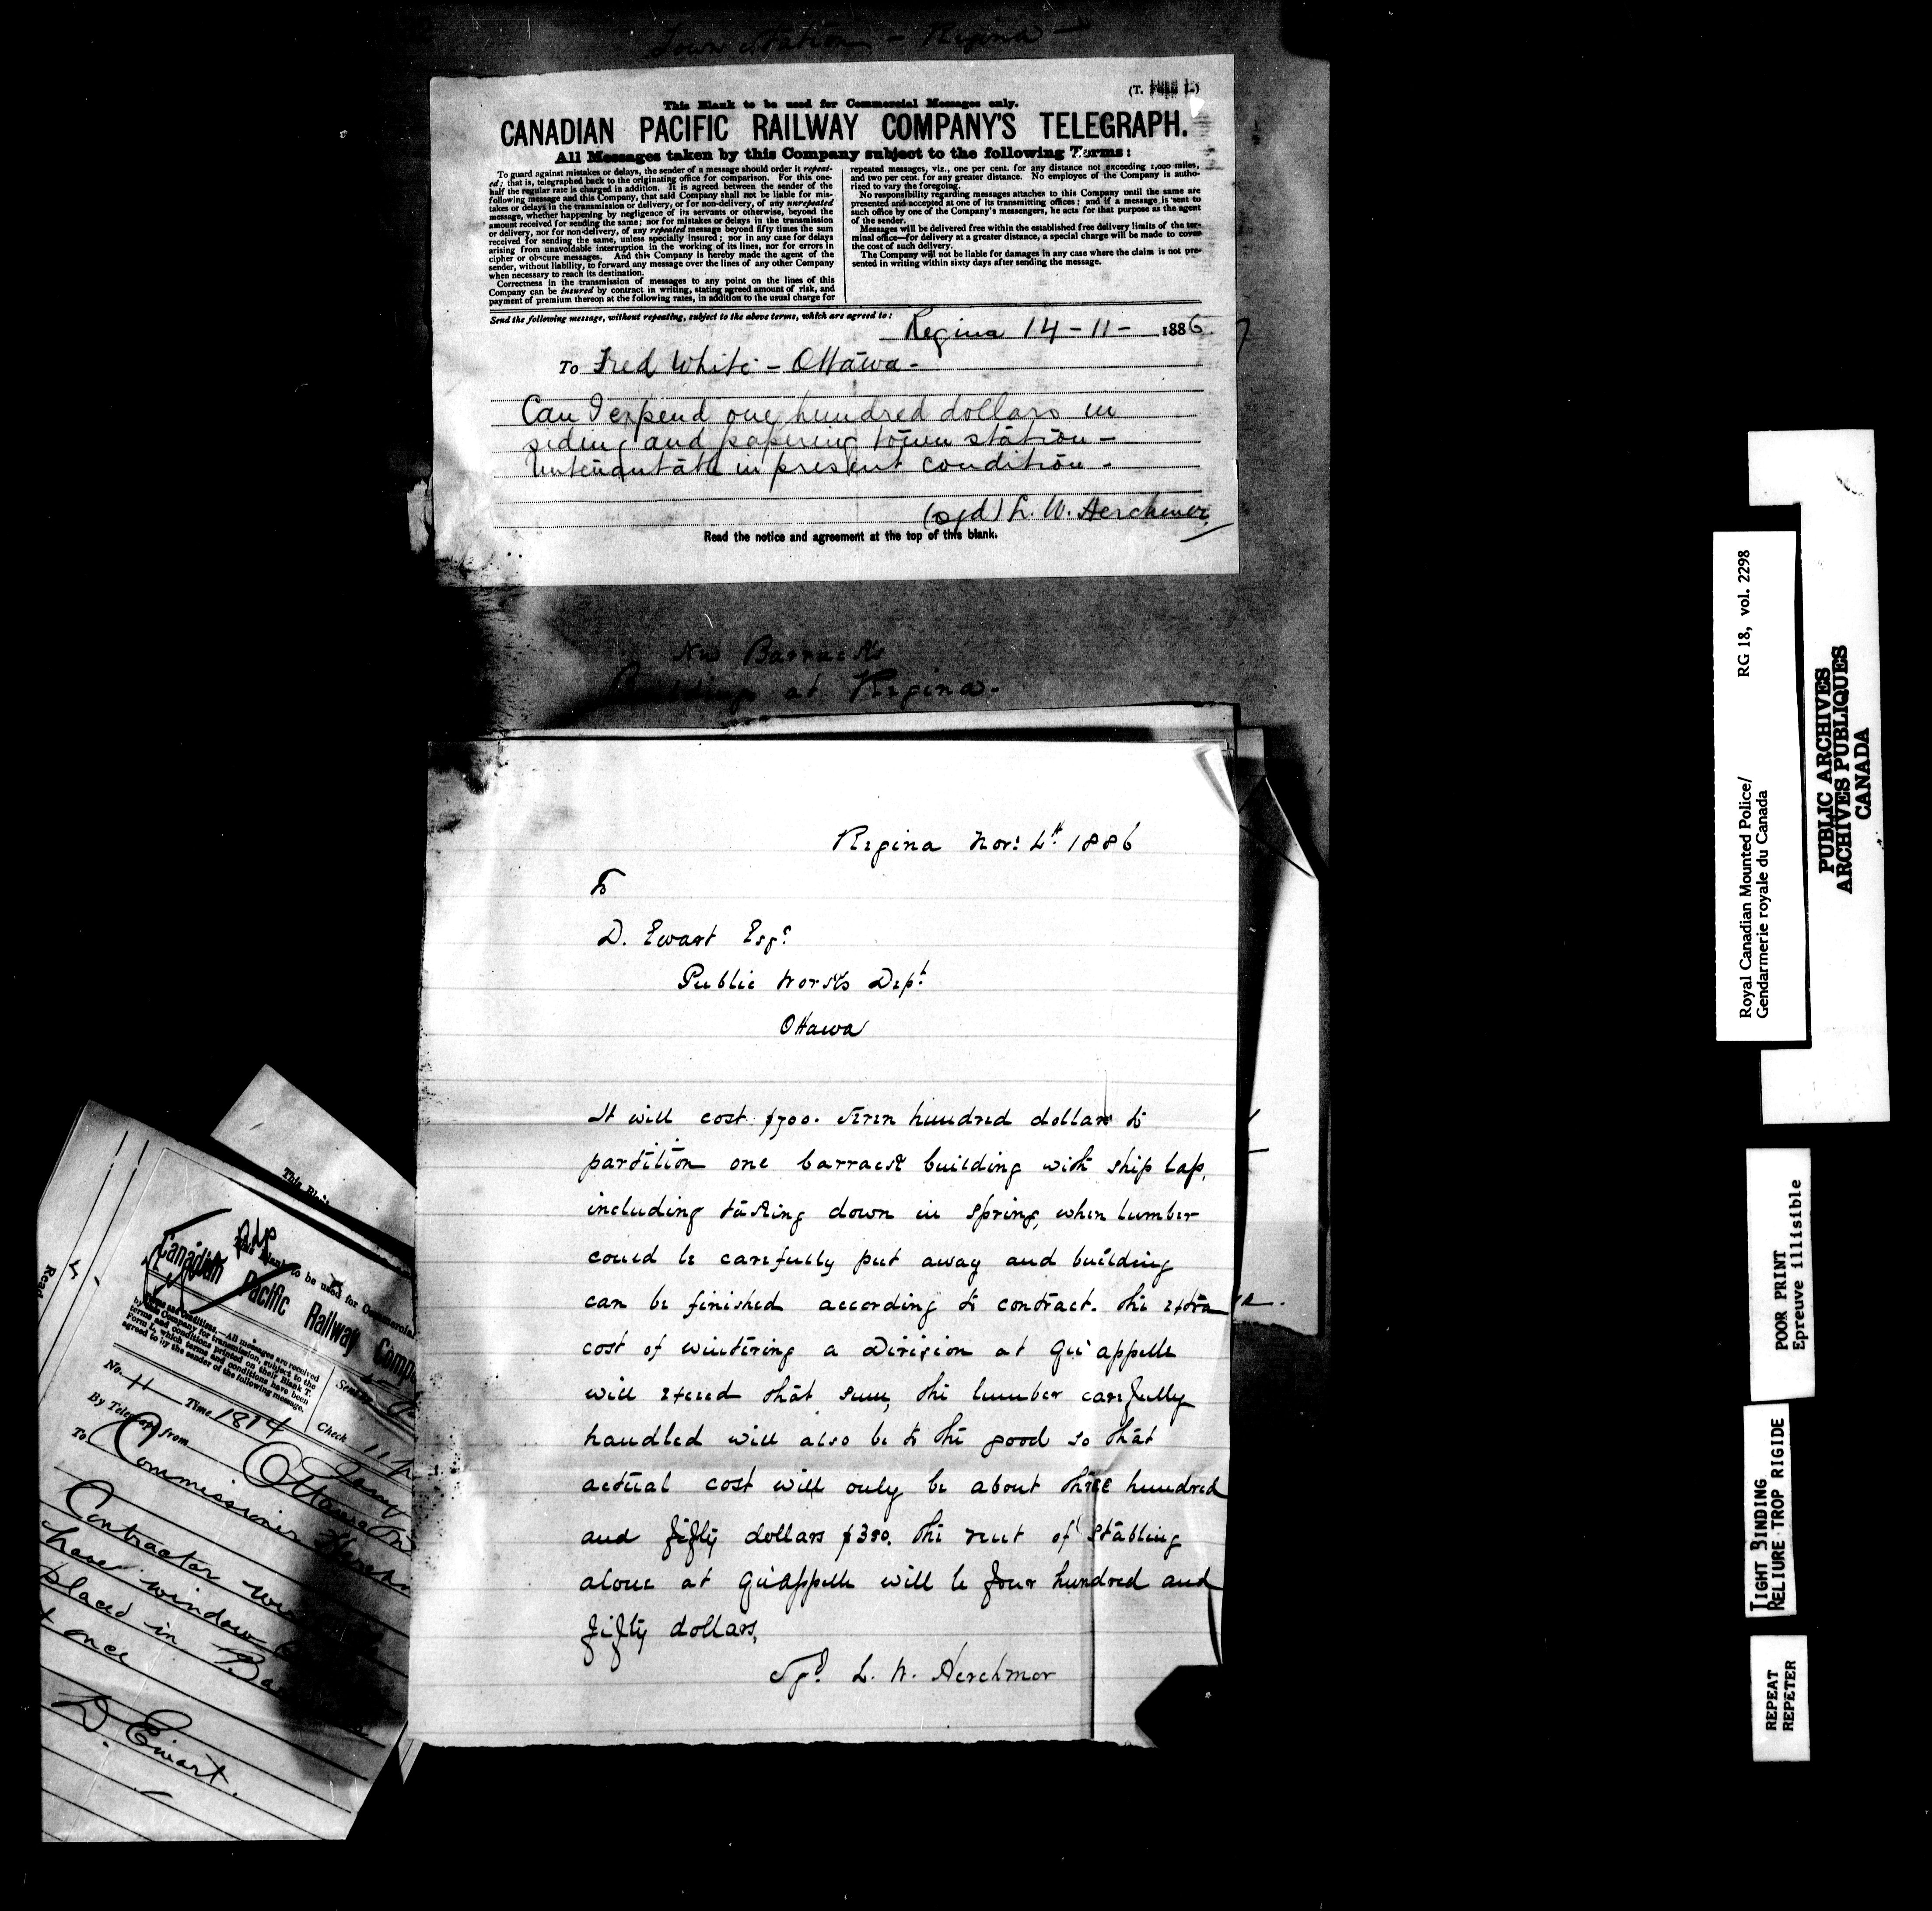 Town Station - Regina -
(T.
This Blank to be used for Commercial Messages only.
CANADIAN PACIFIC RAILWAY COMPANY'S TELEGRAPH.
All Messages taken by this Company subject to the following Terms:
To guard against mistakes or delays, the sender of a message should order it repeat-
ed; that is, telegraphed back to the originating office for comparison. For this one-
half the regular rate is charged in addition. It is agreed between the sender of the
following message and this Company, that said Company shall not be liable for mis-
takes or delays in the transmission or delivery, or for non-delivery, of any unrepeated
message, whether happening by negligence of its servants or otherwise, beyond the
amount received for sending the same; nor for mistakes or delays in the transmission
or delivery, nor for non-delivery, of any repeated message beyond fifty times the sum
received for sending the same, unless specially insured; nor in any case for delays
arising from unavoidable interruption in the working of its lines, nor for errors in
cipher or obscure messages. And this Company is hereby made the agent of the
sender, without liability, to forward any message over the lines of any other Company
when necessary to reach its destination.
Correctness in the transmission of messages to any point on the lines of this
Company can be insured by contract in writing, stating agreed amount of risk, and
payment of premium thereon at the following rates, in addition to the usual charge for
repeated messages, viz., one per cent. for any distance not exceeding 1,000 miles,
and two per cent. for any greater distance. No employee of the Company is autho-
rized to vary the foregoing.
No responsibility regarding messages attaches to this Company until the same are
presented and accepted at one of its transmitting offices; and if a message is sent to
such office by one of the Company's messengers, he acts for that purpose as the agent
of the sender.
Messages will be delivered free within the established free delivery limits of the ter-
minal office—for delivery at a greater distance, a special charge will be made to cover
the cost of such delivery.
The Company will not be liable for damages in any case where the claim is not pre-
sented in writing within sixty days after sending the message.
Send the following message, without repeating, subject to the above terms, which are agreed to:
Regina 14-11- 1886
To Fred White - Ottawa -
Can I expend one hundred dollars in
siding and papering town station -
Untenantable in present condition -
(sgd) L. W. Herchmer
Read the notice and agreement at the top of this blank.
New Barracks
Buildings at Regina -
Regina Nov: 4th 1886
To
D. Ewart Esqr
Public Works Dept
Ottawa
It will cost $700. Seven hundred dollars to
partition one barrack building with ship lap,
including taking down in spring, when lumber
could be carefully put away and building
can be finished according to contract. The extra
cost of wintering a Division at Qu'appelle
will exceed that sum, the lumber carefully
handled will also be to the good so that
actual cost will only be about three hundred
and fifty dollars $350. The rent of stabling
alone at Qu'Appelle will be four hundred and
fifty dollars,
Sgd L. W. Herchmer
This Bl
Read
This Blank to be used for Commercial
Canadian Pacific Railway Comp
Terms and Conditions.—All messages are received
by this Company for transmission, subject to the
terms and conditions printed on their Blank T.
Form 1, which terms and conditions have been
agreed to by the sender of the following message.
No. 11 Time 1814 Check 11
By Telegraph from Ottawa Ont
To Commissioner
Contractor
have window
placed in
t once
D. Ewart.
Royal Canadian Mounted Police/ RG 18, vol. 2298
Gendarmerie royale du Canada
PUBLIC ARCHIVES
ARCHIVES PUBLIQUES
CANADA
POOR PRINT
Epreuve illisible
TIGHT BINDING
RELIURE TROP RIGIDE
REPEAT
REPETER